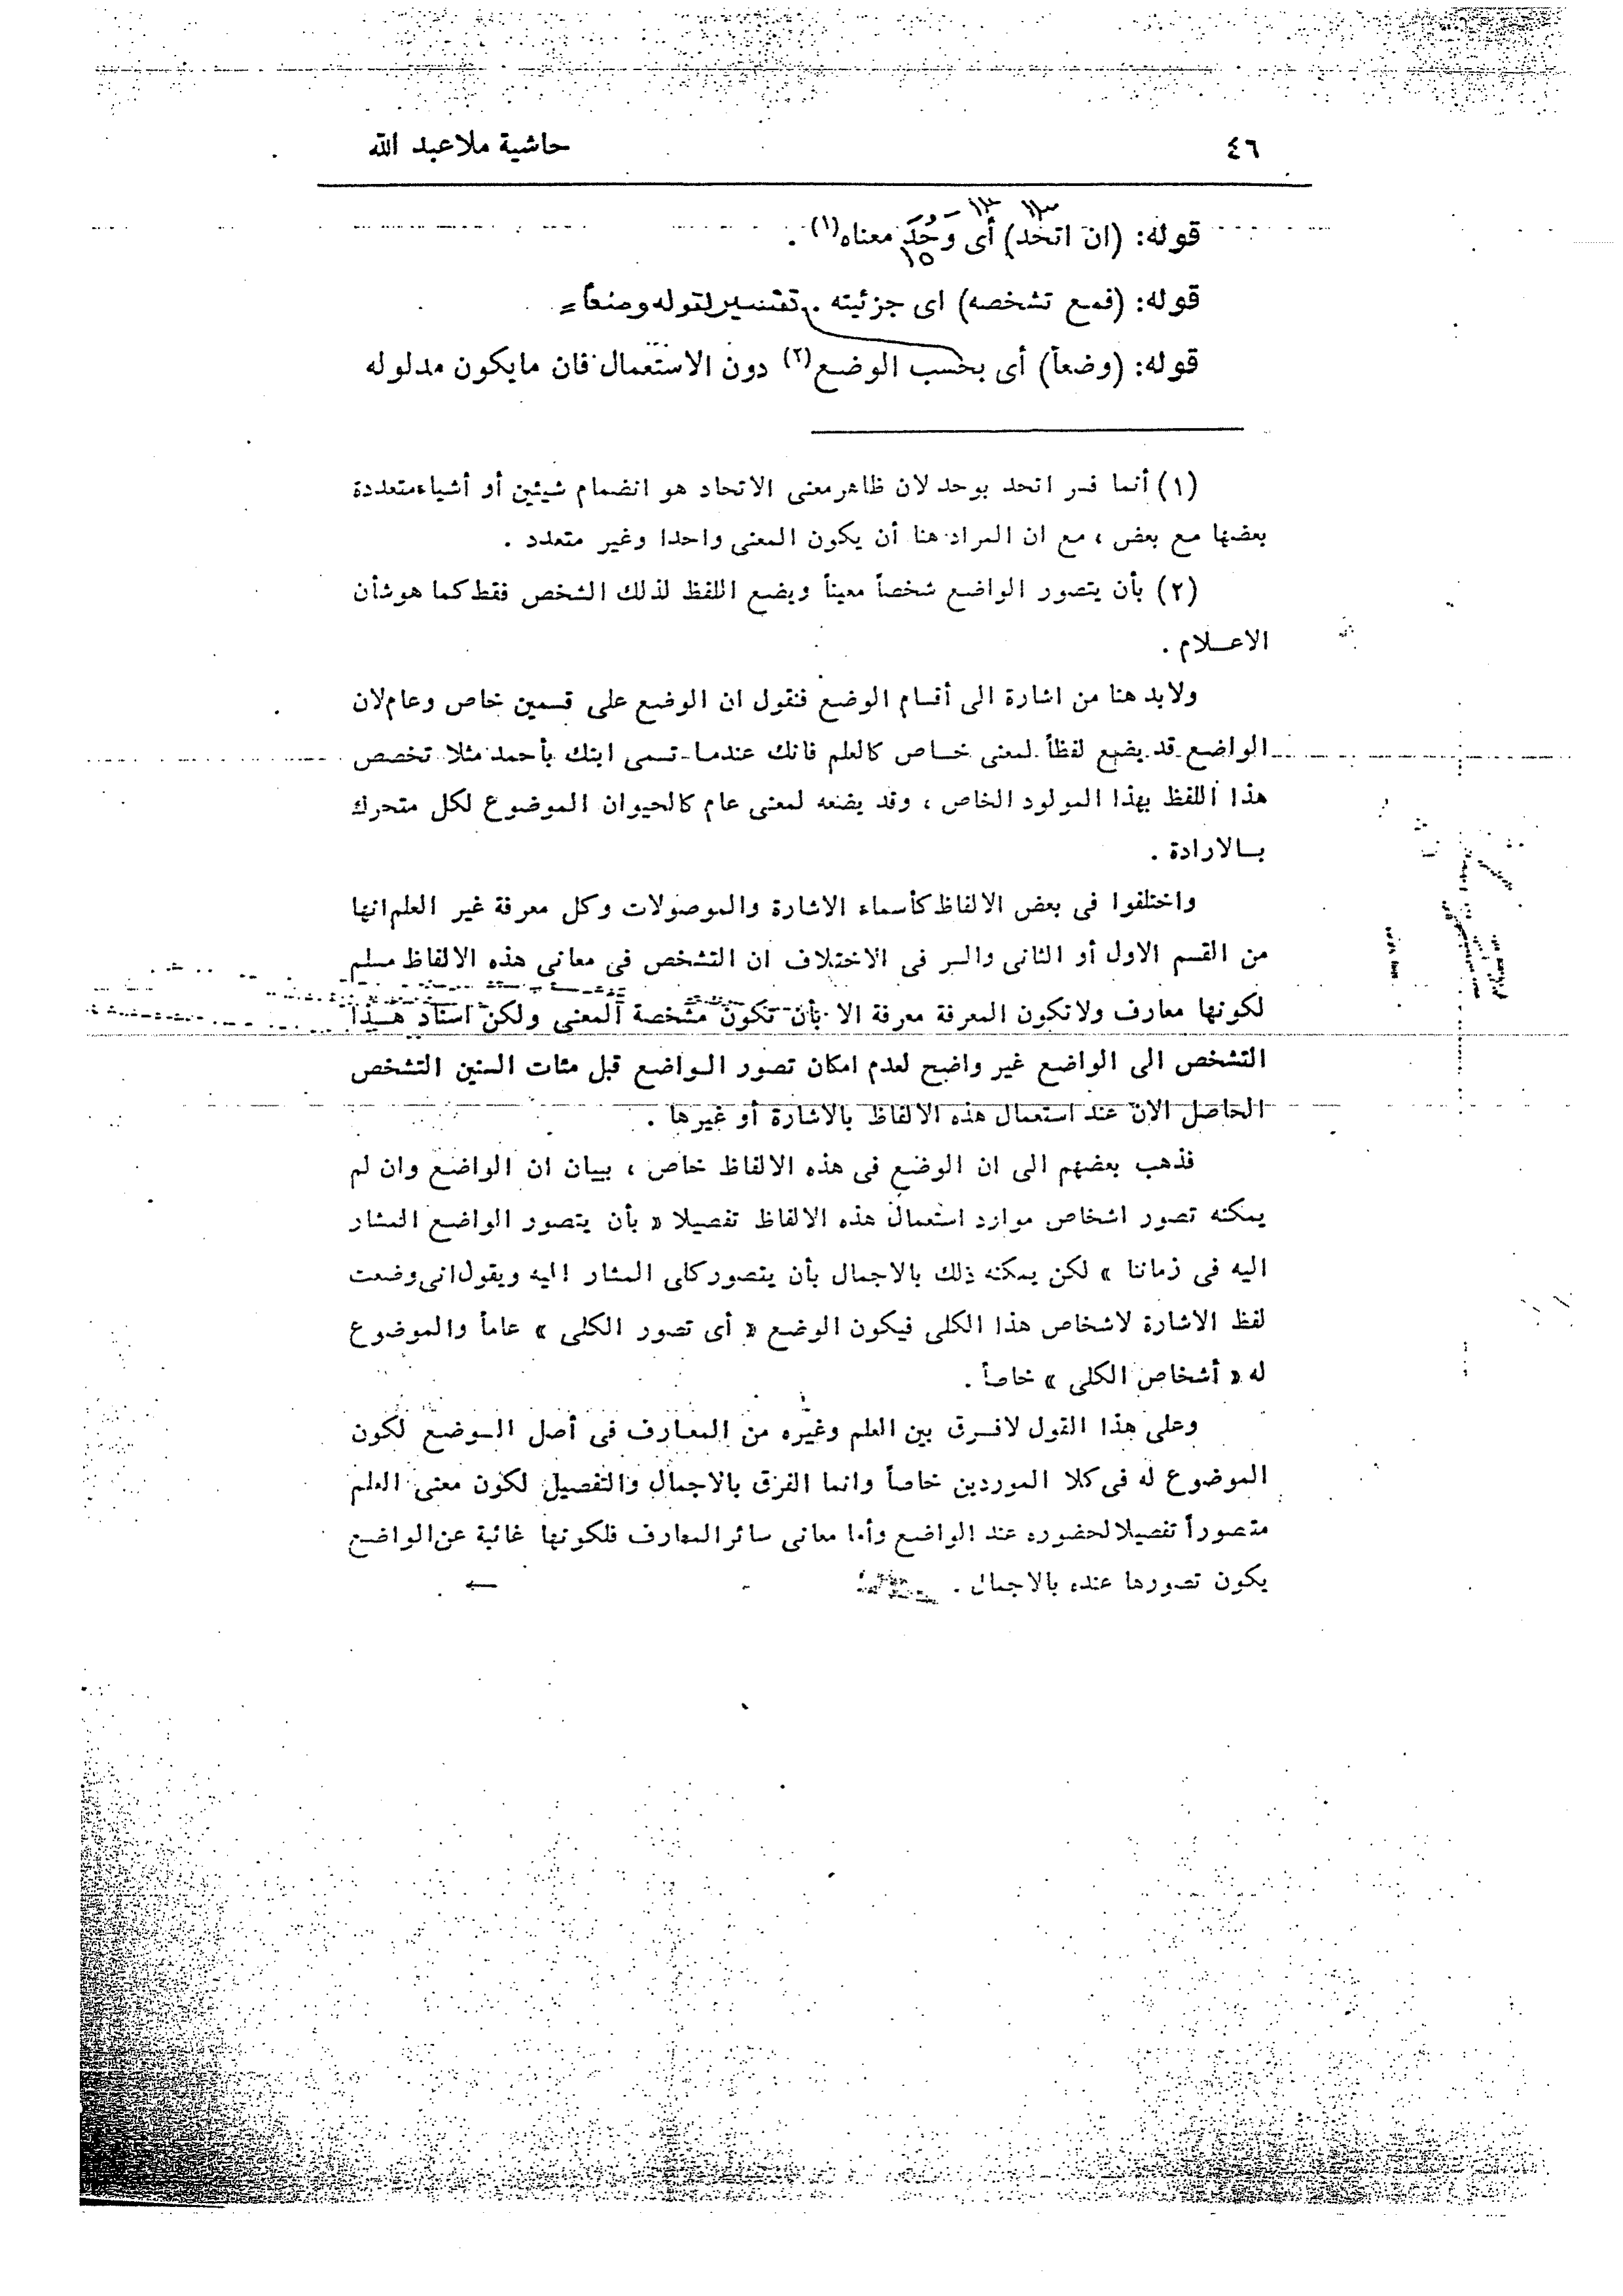 ٤٦
حاشية ملاعبد الله
قوله: (ان اتحد) أى وحَّد معناه(١) .
قوله: (فمع تشخصه) اى جزئيته . تفسير لقوله وضعاً =
قوله: (وضعاً) أى بحسب الوضع(٢) دون الاستعمال فان مايكون مدلوله
(١) أنما فسر اتحد بوحد لان ظاهر معنى الاتحاد هو انضمام شيئين أو أشياء متعددة
بعضها مع بعض ، مع ان المراد هنا أن يكون المعنى واحدا وغير متعدد .
(٢) بأن يتصور الواضع شخصاً معيناً ويضع اللفظ لذلك الشخص فقط كما هو شأن
الاعــلام .
ولابد هنا من اشارة الى أقسام الوضع فنقول ان الوضع على قسمين خاص وعام لان
الواضع قد يضع لفظاً لمعنى خــاص كالعلم فانك عندمـا تسمى ابنك بأحمد مثلا تخصص
هذا اللفظ بهذا المولود الخاص ، وقد يضعه لمعنى عام كالحيوان الموضوع لكل متحرك
بــالارادة .
واختلفوا فى بعض الالفاظ كأسماء الاشارة والموصولات وكل معرفة غير العلم انها
من القسم الاول أو الثانى والسر فى الاختلاف ان التشخص فى معانى هذه الالفاظ مسلم
لكونها معارف ولاتكون المعرفة معرفة الا بأن تكون مشخصة المعنى ولكن اسناد هــذا
التشخص الى الواضع غير واضح لعدم امكان تصور الـواضع قبل مئات السنين التشخص
الحاصل الان عند استعمال هذه الالفاظ بالاشارة أو غيرها .
فذهب بعضهم الى ان الوضع فى هذه الالفاظ خاص ، ببيان ان الواضع وان لم
يمكنه تصور اشخاص موارد استعمال هذه الالفاظ تفصيلا « بأن يتصور الواضع المشار
اليه فى زماننا » لكن يمكنه ذلك بالاجمال بأن يتصور كلى المشار اليه ويقول انى وضعت
لفظ الاشارة لاشخاص هذا الكلى فيكون الوضع « أى تصور الكلى » عاماً والموضوع
له « أشخاص الكلى » خاصاً .
وعلى هذا القول لافــرق بين العلم وغيره من المعـارف فى أصل الـوضع لكون
الموضوع له فى كلا الموردين خاصاً وانما الفرق بالاجمال والتفصيل لكون معنى العلم
متصوراً تفصيلا لحضوره عند الواضع وأما معانى سائر المعارف فلكونها غائبة عن الواضع
يكون تصورها عنده بالاجمال . ←